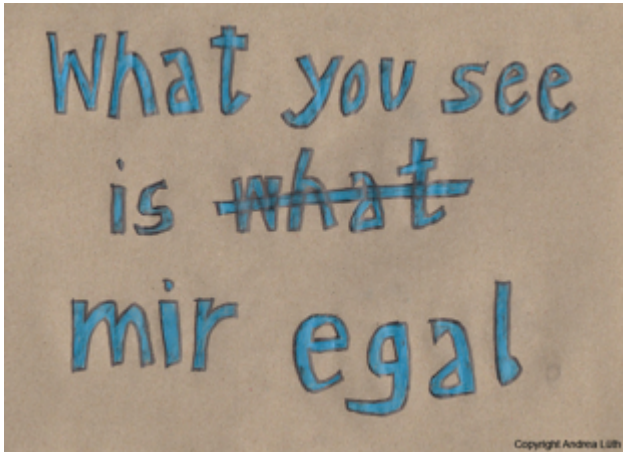 What you see
is what
mir egal
Copyright Andrea Lüth